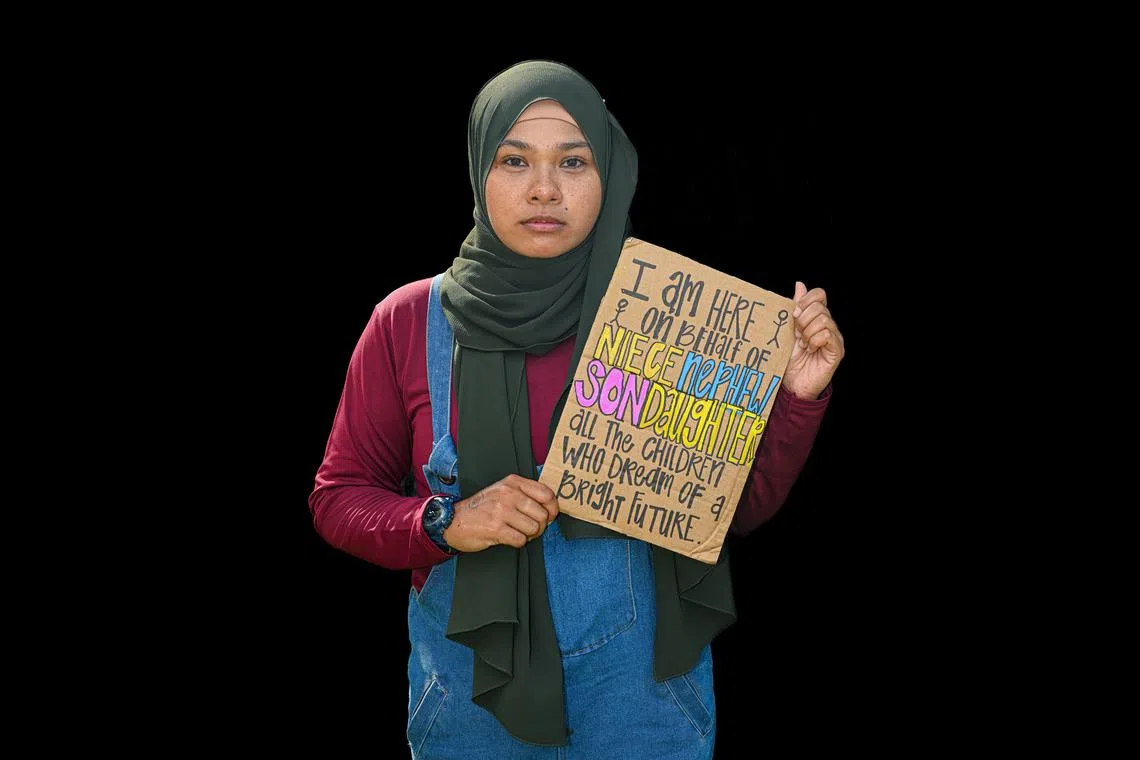 I am HERE
on BEHalf of
NIECE nEPHEW
SON DaUGHTER
all THE CHILDREN
WHO DReam OF a
BRIgHt FUTURE.